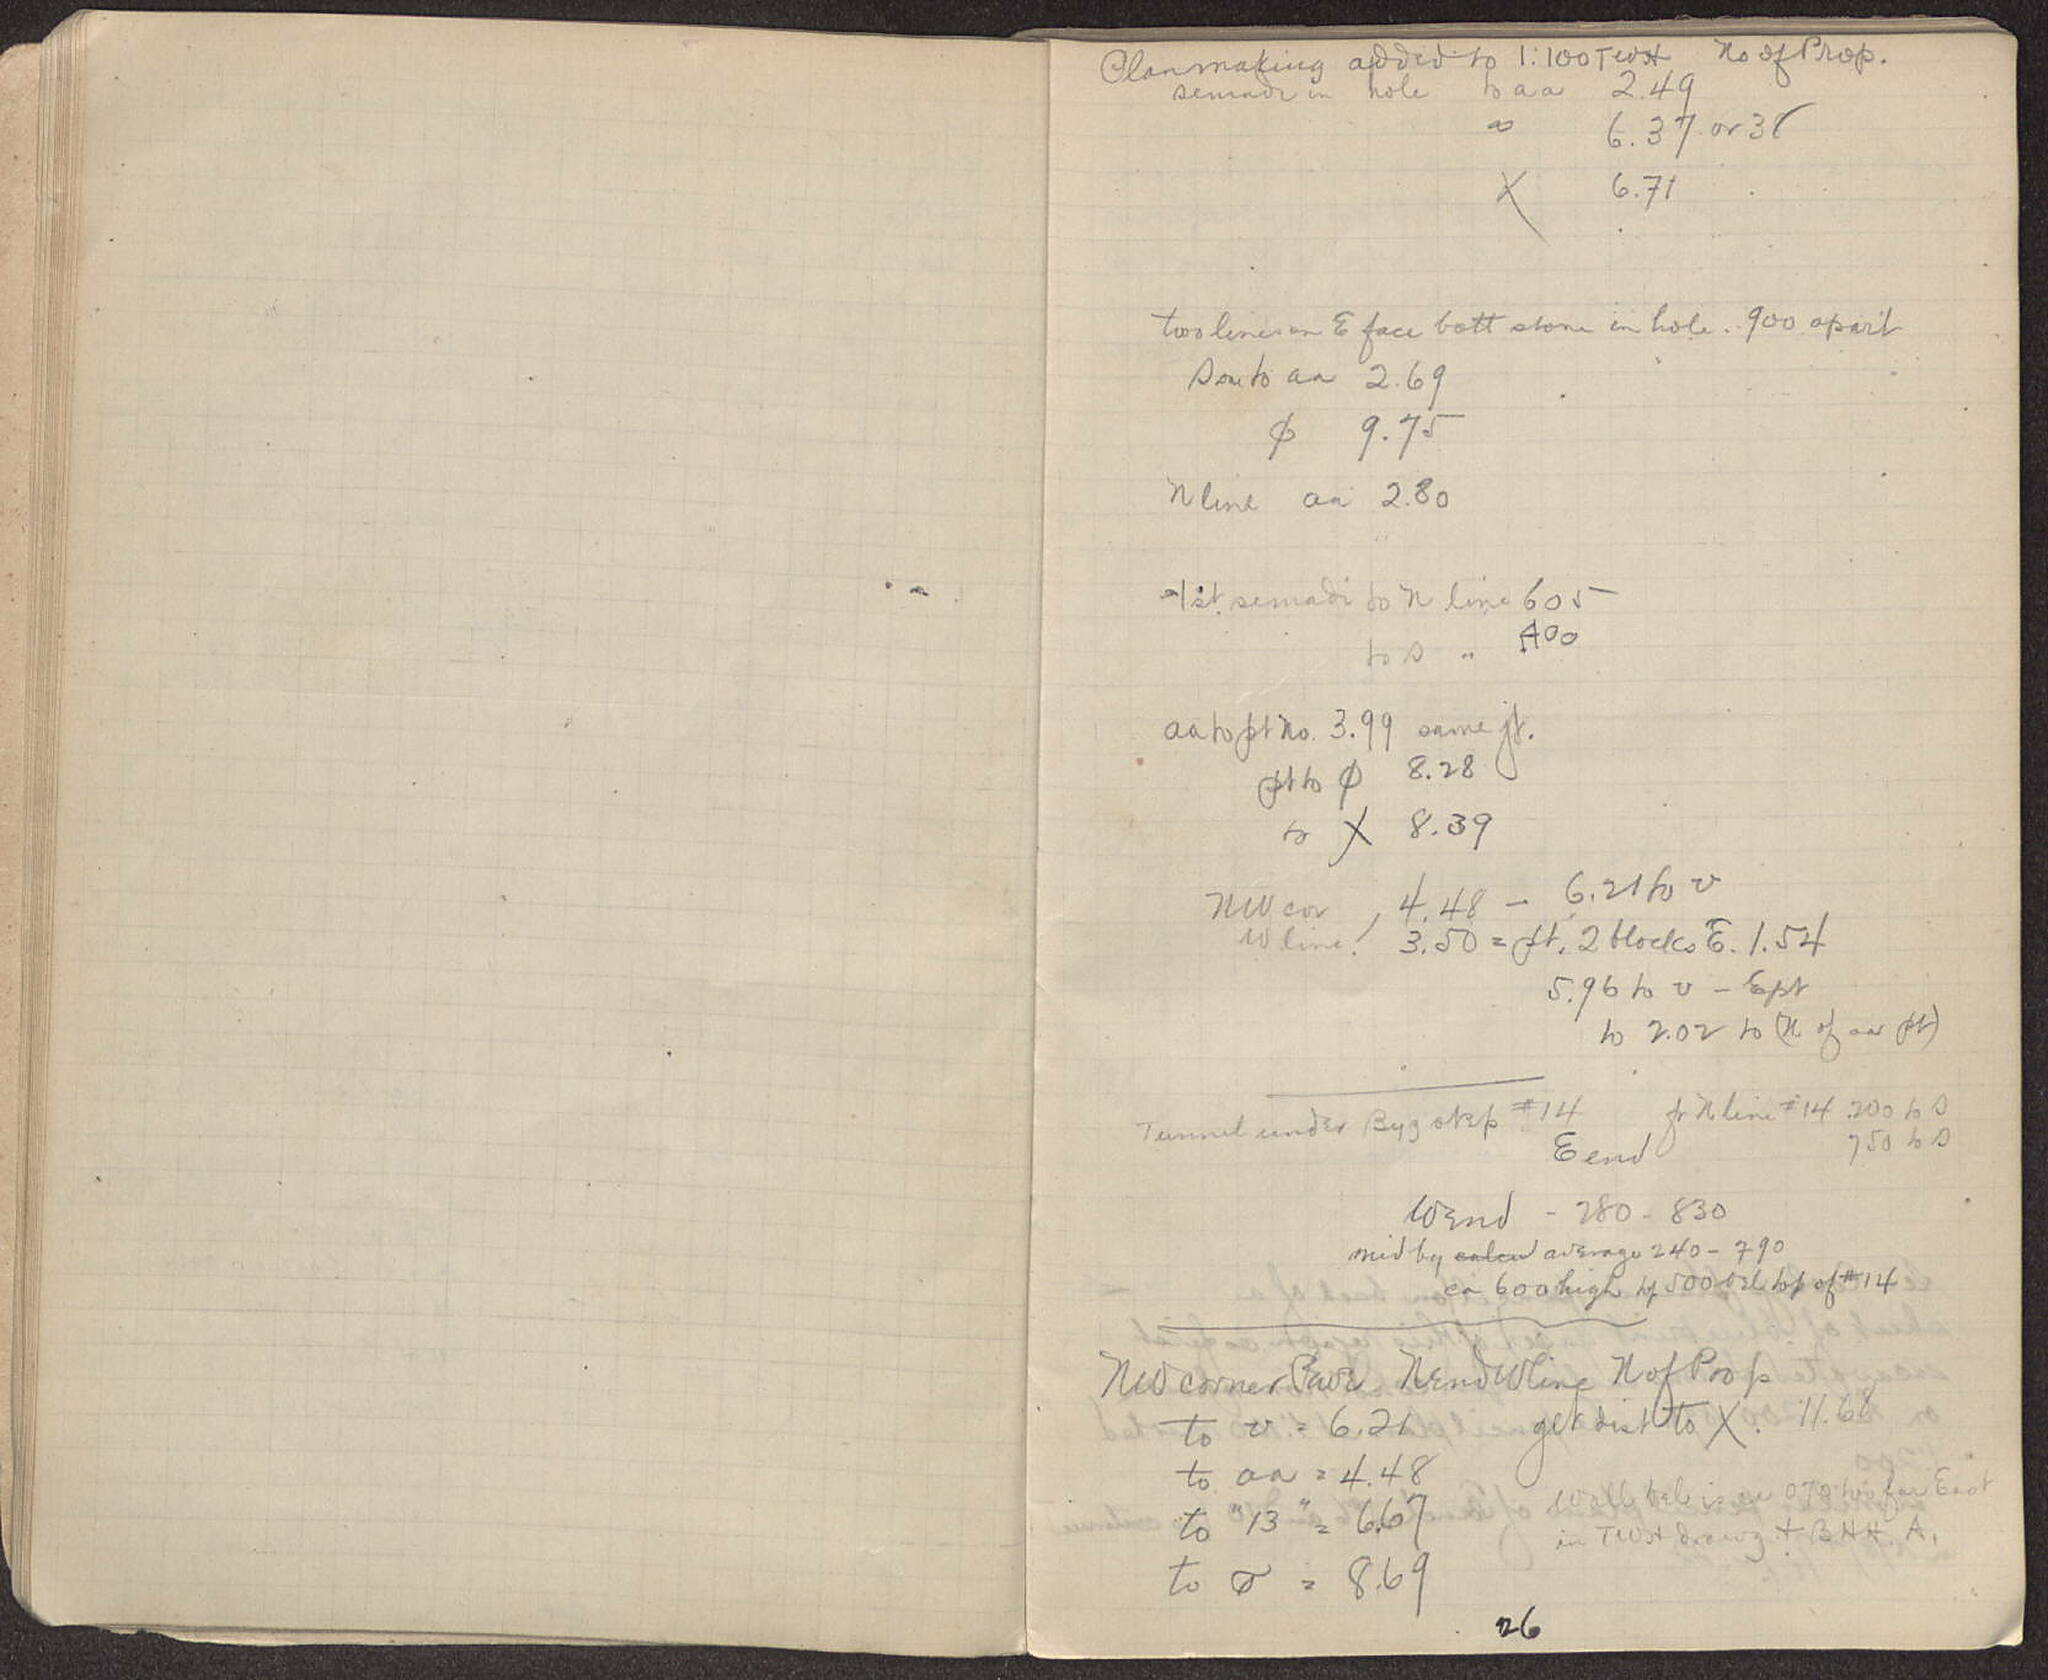 Planmaking added to 1:100 TWH N of Prop.
semadi in hole to aa 2.49
∞ 6.37 or 38
X 6.71
two lines on E face bott stone in hole . . 900 apart
S one to aa 2.69
φ 9.75
N line aa 2.80
1st. semadi to N line 605
to S " 400
aa to pt No. 3.99 same jt.
pt to φ 8.28
to X 8.39
NW cor , 4.48 - 6.21 to v
W line! 3.50 = pt. 2 blocks E. 1.54
5.96 to v - E pt
to 2.02 to (N. of aa pt)
Tunnel under Byz step #14 fr N line #14 .200 to S
E end 750 to S
W end - 280 - 830
mid by calcu average 240 - 790
ca 600 high top 500 bel top of #14
NW corner Pave N end W line N of Prop
to v = 6.21 get dist to X. 11.68
to aa = 4.48
to "13" = 6.67
to σ = 8.69
Wall bel is ca 070 too far East
in TWH drawg + BHH. A.
26